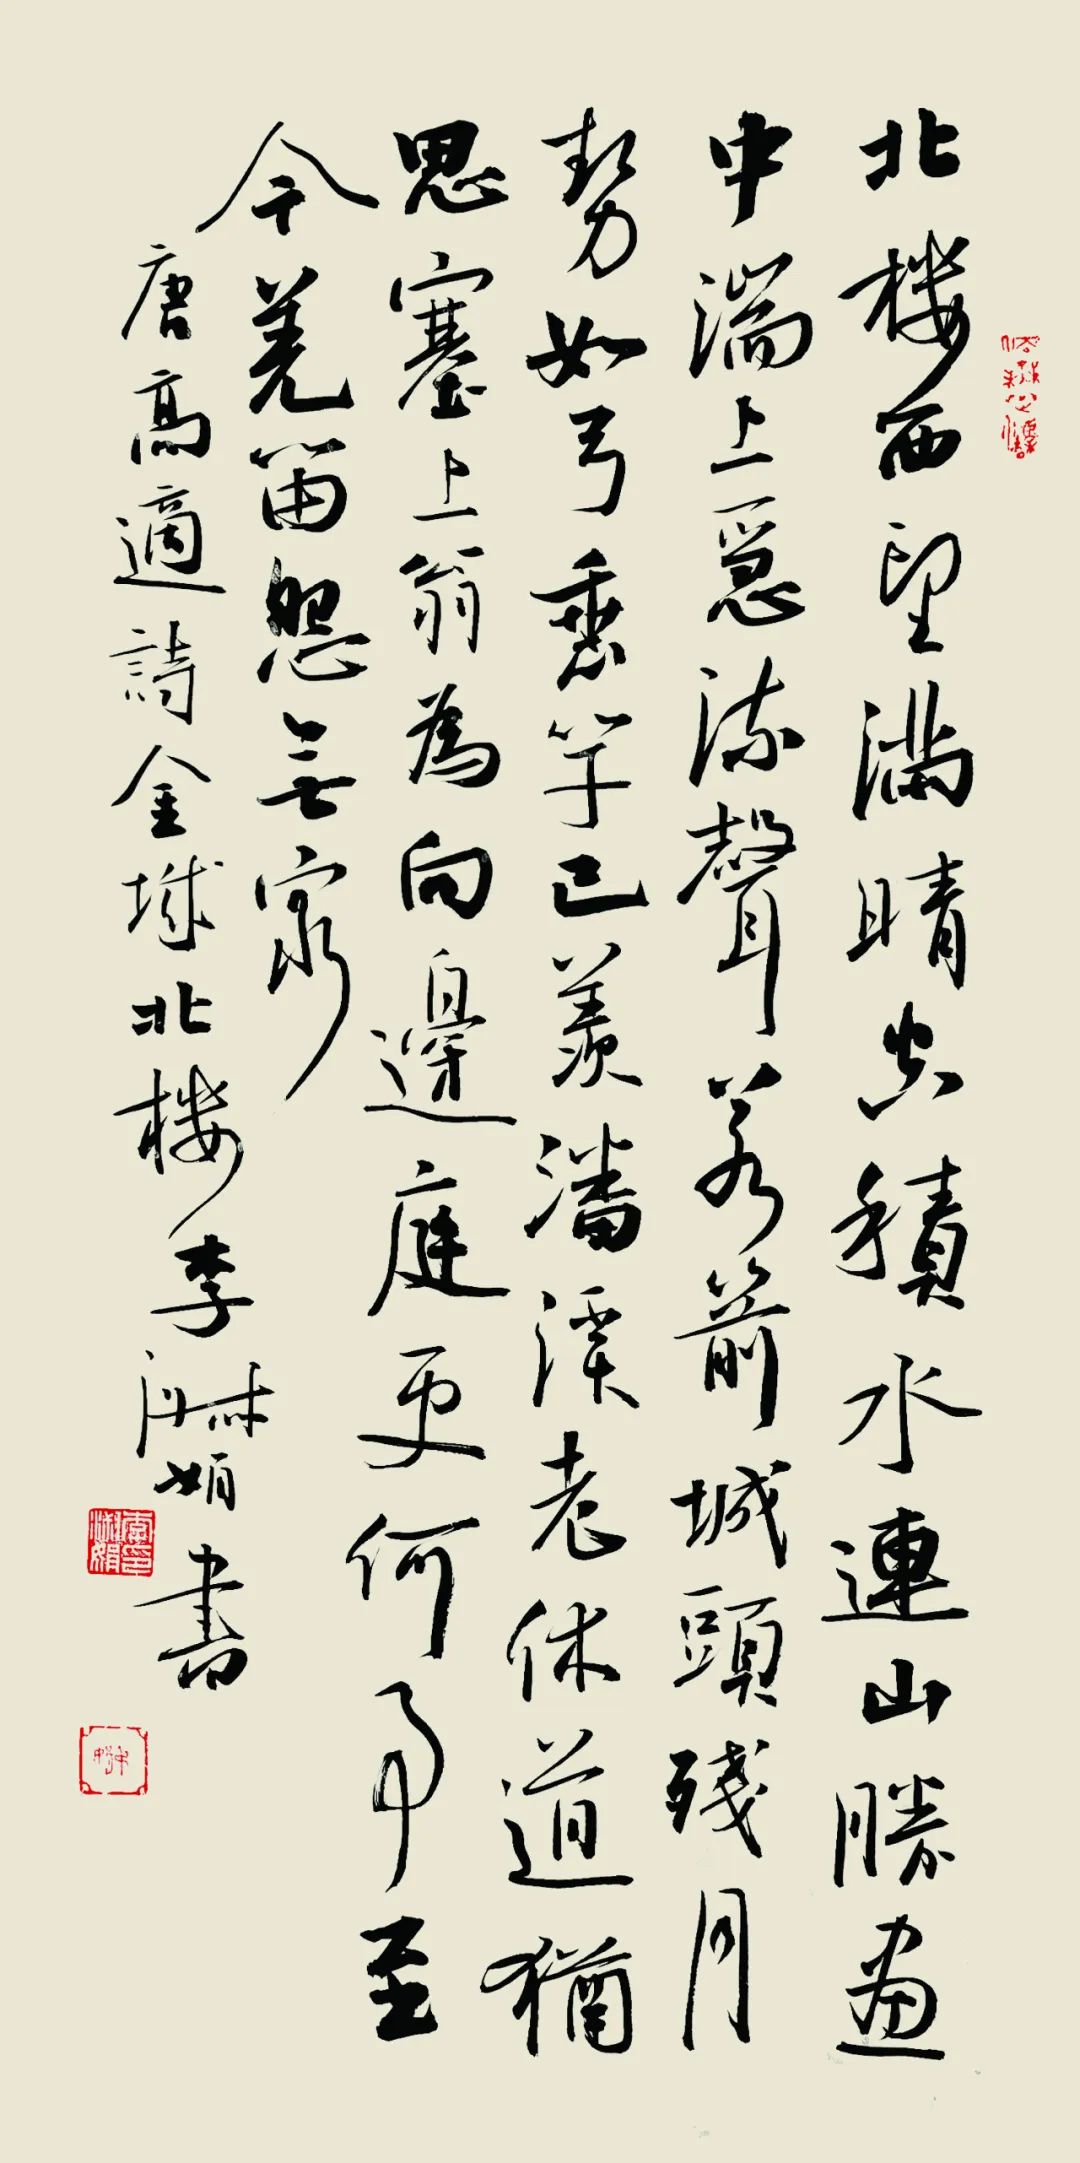 北楼西望滿晴空積水連山勝畫
中湍上急流聲若箭城頭殘月
勢如弓垂竿已羨潘溪老休道猶
思塞上翁為向邊庭更何事至
今羌笛怨無窮
唐高適詩金城北楼李娟書